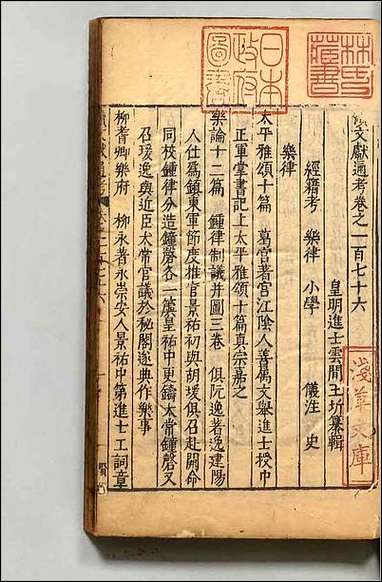 林氏藏書
日本政府圖書
淺草文庫
續文獻通考卷之一百七十六
皇明進士雲間王圻纂輯
經籍考 樂律 小學 儀注 史
樂律
太平雅頌十篇 葛宫著宫江陰人善属文舉進士授中
正軍掌書記上太平雅頌十篇真宗嘉之
樂論十二篇 鍾律制議并圖三卷 俱阮逸著逸建陽
人仕爲鎮東軍節度推官景祐初與胡瑗俱召赴開命
同校鍾律分造鍾磬各一簴皇祐中更鑄太常鍾磬又
召瑗逸與近臣太常官議於秘閣遂典作樂事
柳耆卿樂府 柳永著永崇安人景祐中第進士工詞章